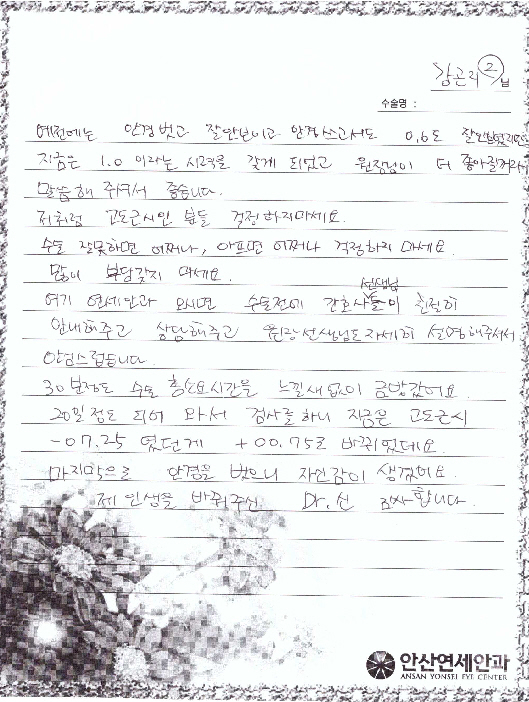 김곤리 ② 님
수술명 :
예전에는 안경벗고 잘안보이고 안경쓰고서도 0.6도 잘안보였지만
지금은 1.0 이라는 시력을 갖게 되었고 원장님이 더 좋아질거라
말씀해 주셔서 좋습니다.
저처럼 고도근시인 분들 걱정하지마세요.
수술 잘못하면 어쩌나, 아프면 어쩌나 걱정하지 마세요.
많이 부담갖지 마세요.
여기 연세안과 오시면 수술전에 간호사선생님들이 친절히
안내해주고 상담해주고 원장선생님도 자세히 설명해주셔서
안심스럽습니다.
30분정도 수술 총소요시간을 느낄새없이 금방갔어요.
20일정도 되어 와서 검사를 하니 지금은 고도근시
-07.25 였던게 +00.75로 바뀌었데요.
마지막으로 안경을 벗으니 자신감이 생겼어요.
제 인생을 바꿔주신 Dr.신 감사합니다.
안산연세안과
ANSAN YONSEI EYE CENTER